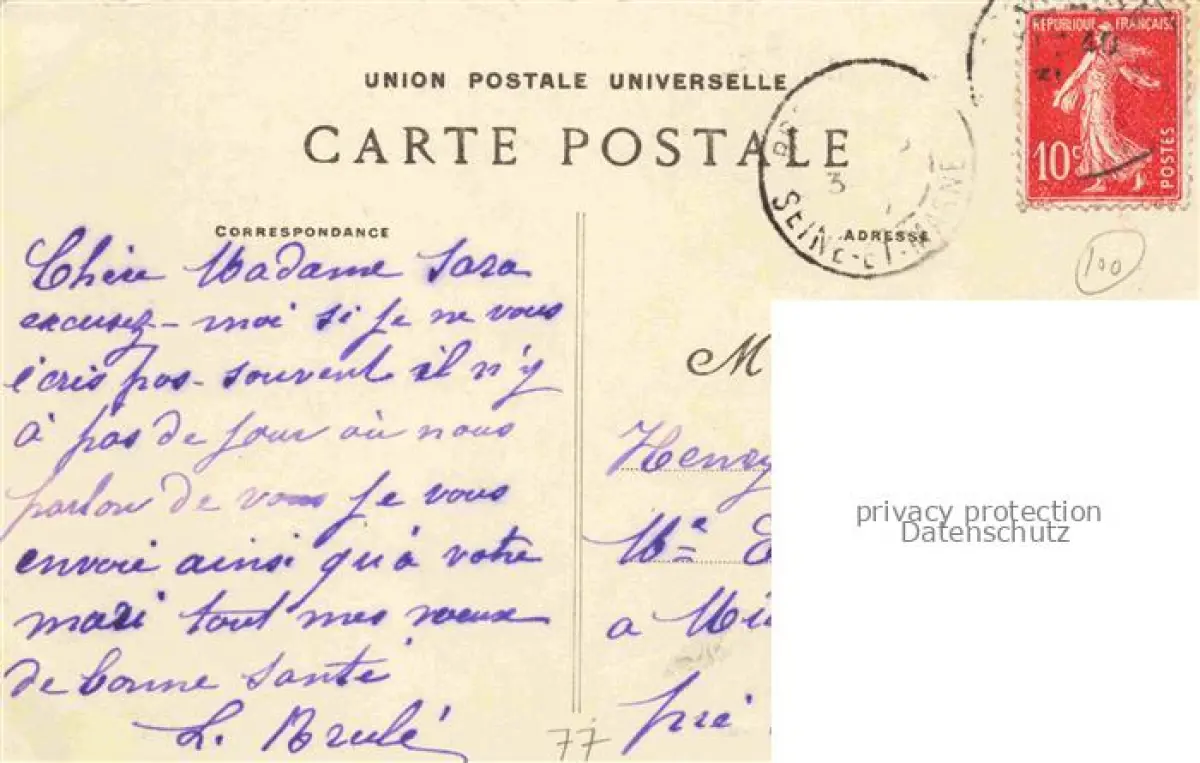 UNION POSTALE UNIVERSELLE
CARTE POSTALE
REPUBLIQUE FRANÇAISE
10c
POSTES
40
3
SEINE-ET-MARNE
CORRESPONDANCE
ADRESSE
100
Chère Madame Sara
excusez-moi si je ne vous
écris pas souvent il n'y
à pas de jour où nous
parlon de vous je vous
envoie ainsi qu'à votre
mari tout mes voeux
de bonne santé
L. Brulé
77
M
Henry
Me
a
pré
privacy protection
Datenschutz